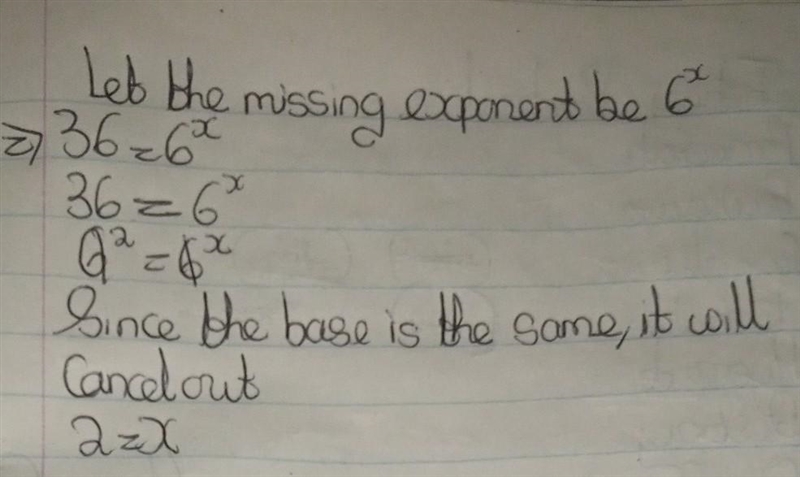 Let the missing exponent be 6ˣ
⇒ 36 = 6ˣ
36 = 6ˣ
6² = 6ˣ
Since the base is the same, it will
Cancel out
2 = x